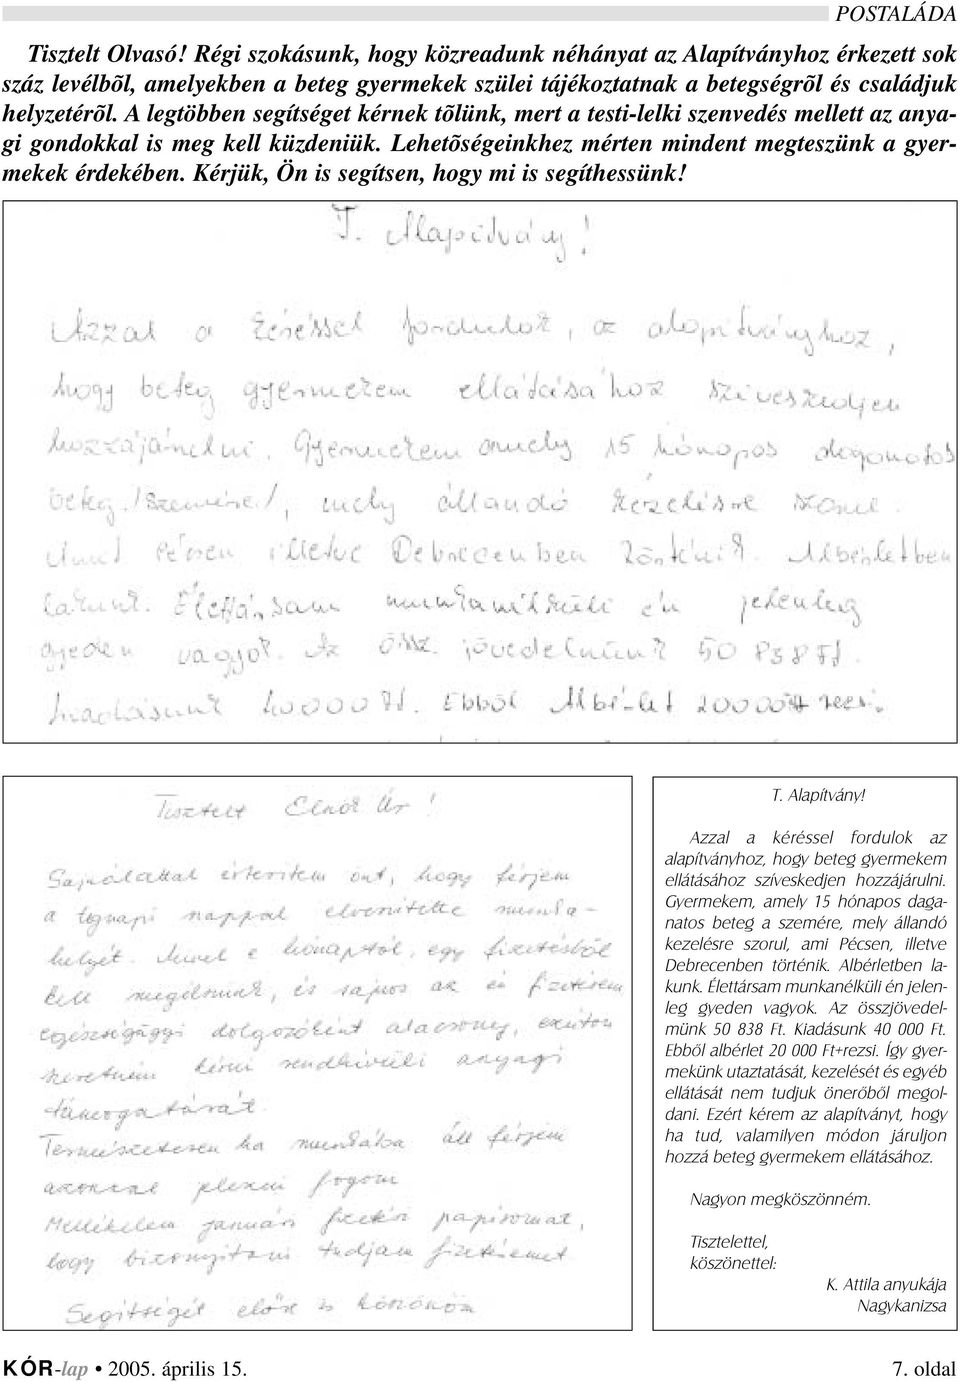 POSTALÁDA
Tisztelt Olvasó! Régi szokásunk, hogy közreadunk néhányat az Alapítványhoz érkezett sok
száz levélbõl, amelyekben a beteg gyermekek szülei tájékoztatnak a betegségrõl és családjuk
helyzetérõl. A legtöbben segítséget kérnek tõlünk, mert a testi-lelki szenvedés mellett az anya-
gi gondokkal is meg kell küzdeniük. Lehetõségeinkhez mérten mindent megteszünk a gyer-
mekek érdekében. Kérjük, Ön is segítsen, hogy mi is segíthessünk!
T. Alapítvány!
Azzal a kéréssel fordulok, az alapítványhoz,
hogy beteg gyermekem ellátásához szíveskedjen
hozzájárulni. Gyermekem amely 15 hónapos daganatos
beteg /szemére/, mely állandó kezelésre szorul.
Amit Pécsen illetve Debrecenben történik. Albérletben
lakunk. Élettársam munkanélküli én jelenleg
gyeden vagyok. Az össz. jövedelmünk 50 838 Ft.
Kiadásunk 40000 Ft. Ebből Albérlet 20000Ft+rezsi.
Tisztelt Elnök Úr!
Sajnálattal értesítem önt, hogy férjem
a tegnapi nappal elveszítette munka-
helyét. Mivel e hónaptól, egy fizetésből
kell megélnünk, és sajnos az én fizetésem
egészségügyi dolgozóként alacsony, ezúton
szeretném kérni rendkívüli anyagi
támogatását.
Természetesen ha munkába áll férjem
azonnal jelezni fogom
Mellékelem januári fizetési papíromat,
hogy bizonyítani tudjam fizetésemet
Segítségét előre is köszönöm
T. Alapítvány!
Azzal a kéréssel fordulok az
alapítványhoz, hogy beteg gyermekem
ellátásához szíveskedjen hozzájárulni.
Gyermekem, amely 15 hónapos daga-
natos beteg a szemére, mely állandó
kezelésre szorul, ami Pécsen, illetve
Debrecenben történik. Albérletben la-
kunk. Élettársam munkanélküli én jelen-
leg gyeden vagyok. Az összjövedel-
münk 50 838 Ft. Kiadásunk 40 000 Ft.
Ebből albérlet 20 000 Ft+rezsi. Így gyer-
mekünk utaztatását, kezelését és egyéb
ellátását nem tudjuk önerőből megol-
dani. Ezért kérem az alapítványt, hogy
ha tud, valamilyen módon járuljon
hozzá beteg gyermekem ellátásához.
Nagyon megköszönném.
Tisztelettel,
köszönettel:
K. Attila anyukája
Nagykanizsa
KÓR-lap • 2005. április 15.
7. oldal